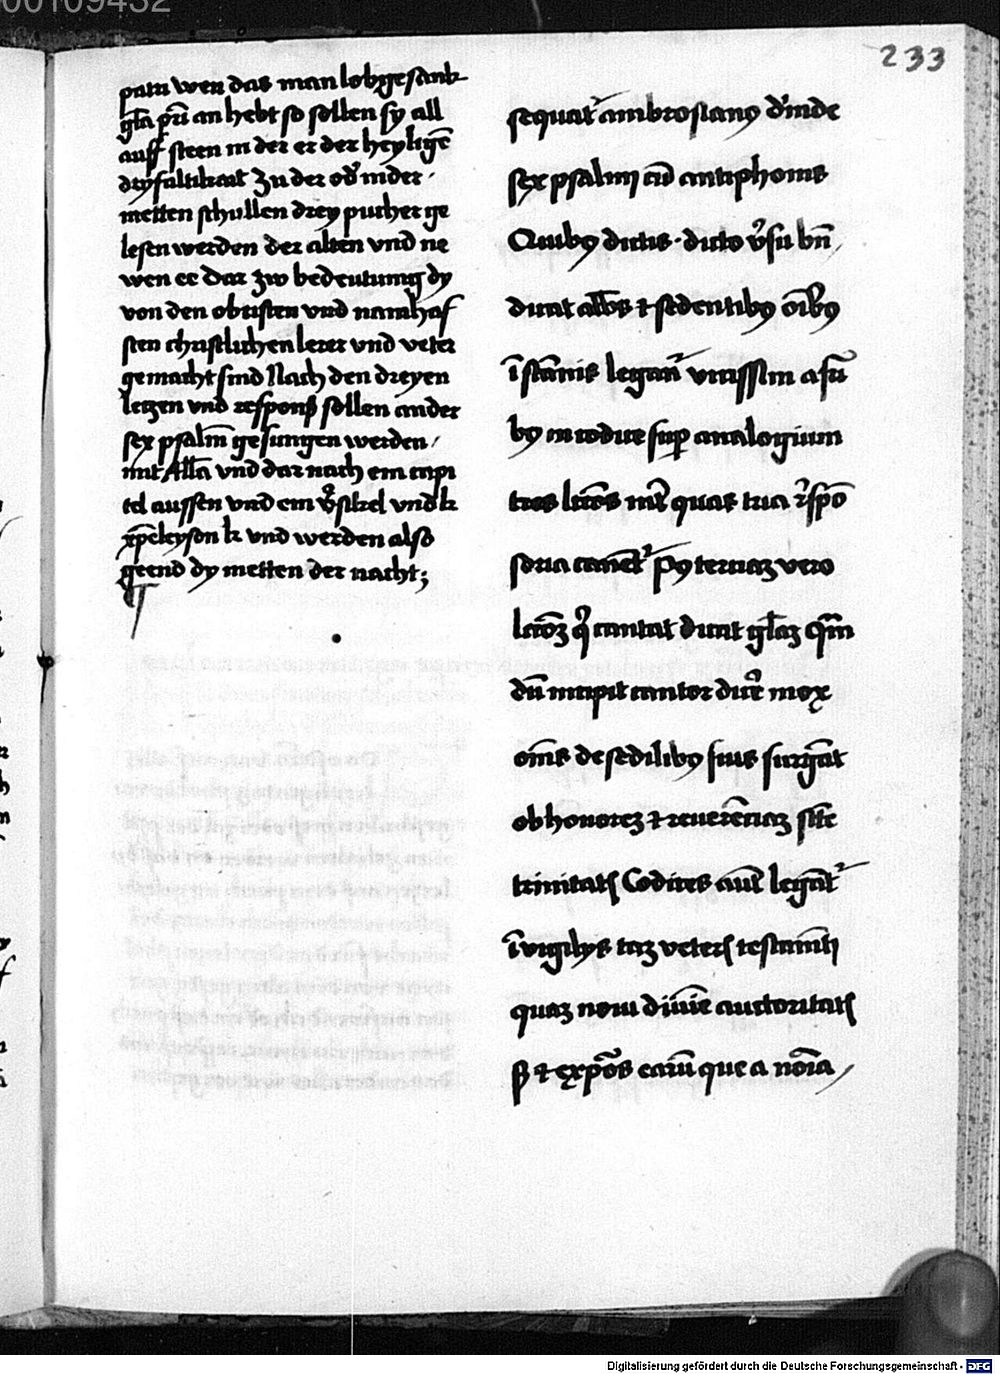 00109432
233
patri wen das man lobgesank
gl̄a pr̄i an hebt so sollen sy all
auff steen in der er der heyligē
dryfaltikait Zu der od' mder ·
metten schullen drey pucher ge
lesen werden der alten vnd ne
wen ee Dar zw bedeutumg dy
von den obristen vnd namhaf
sten christlichen lerer vnd veter
gemacht sind Nach den dreyen
letzen vnd respons sollen ander
sex psalm̄ gesungen werden /
mit All̄a vnd dar nach em capi
tel aussen vnd em v̓sikel vnd k
xp̄eleyson k vnd werden also
geend dy metten der nacht ;
sequat' ambrosianꝯ d'inde
sex psalmi cū antiphonis
Quibꝯ dictis · dicto v̓su bn̄
dicat abb̄s ⁊ sedentibꝯ om̄ibꝯ
ī scām̄is legan̄t' vicissim a fr̄i
bꝯ in codice sup̱ analogium
tres lcc̄ōes int̄ quas tria r̓spō
soria canēt' Pꝯ terciaꝫ vero
lcc̄oꝫ q̓ cantat dicat gl̄aꝫ Qm̄
dū incipit cantor dic̓e mox
om̄s de sedilibꝯ suis surgāt
ob honoreꝫ ⁊ reuerēciaꝫ scē
trinitatꝭ Codices aut̄ legāt'
ī vigilys taꝫ veterꝭ testamēti
quaꝫ noui diuīe auctoritatꝭ
ß ⁊ expōes earū que a noīa /
Digitalisierung gefördert durch die Deutsche Forschungsgemeinschaft - DFG